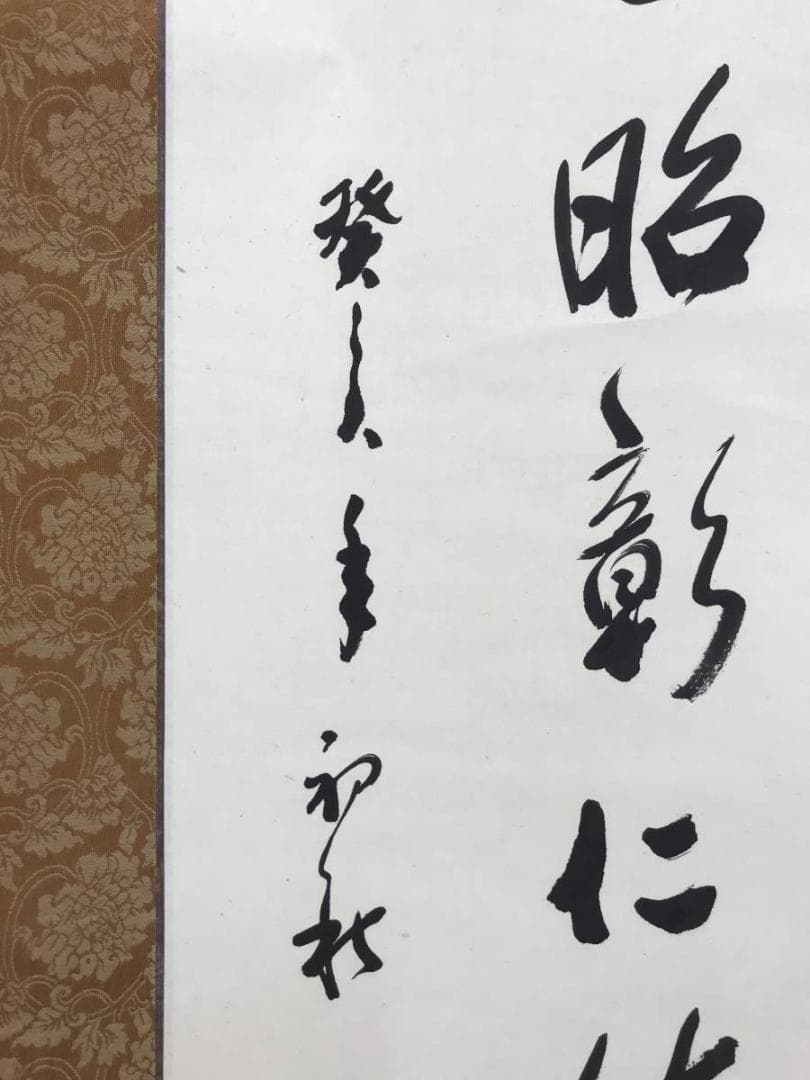 昭彰仁
癸亥年初秋